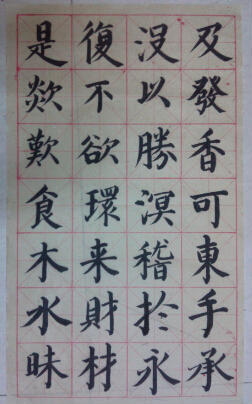 及發香可東手承
沒以勝溟稽扵永
復不欲環来財材
是欻歎食木水昧